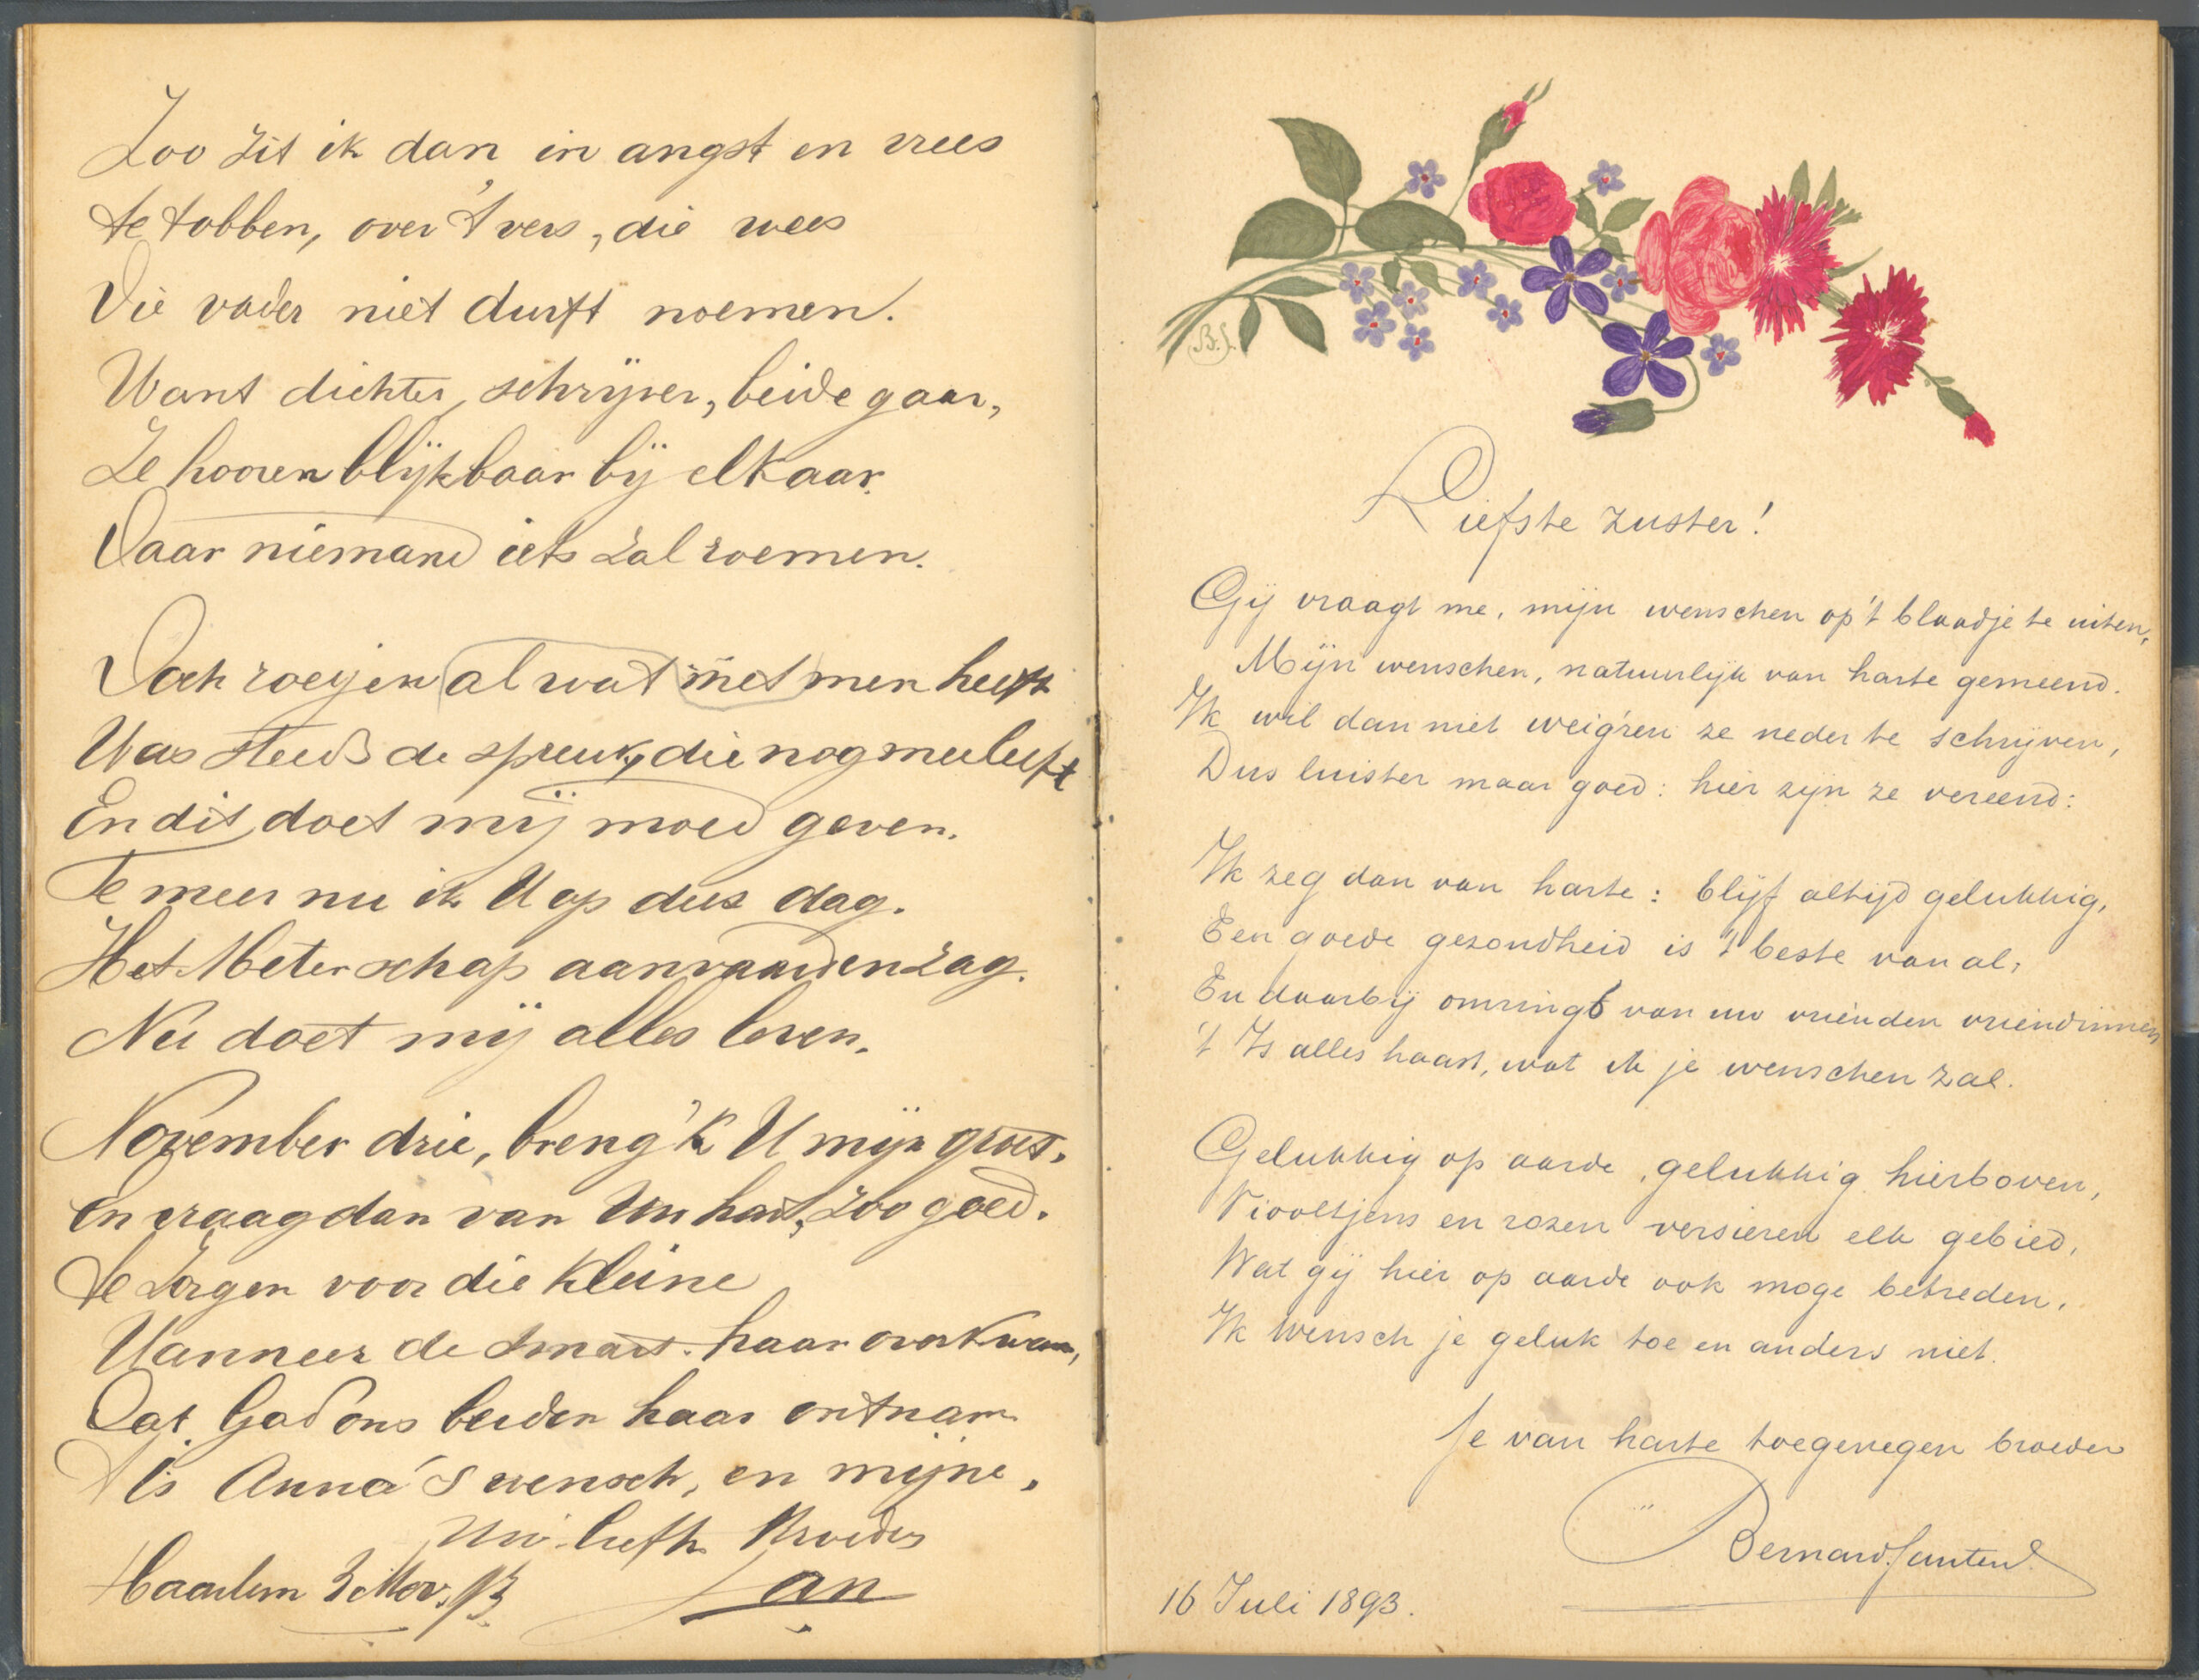 Zoo zit ik dan in angst en vrees
te tobben, over 't vers, die wees
Die vader niet durft noemen.
Want dichter, schrijver, beide gaar,
Ze hooren blijkbaar bij elkaar.
Daar niemand iets zal roemen.
Doch roeijen al wat niet men heeft
Was steeds de spreuk, die nog meeleeft
En dit doet mij moed geven.
Te meer nu ik U op dees dag.
Het Meterschap aanvaarden zag.
Nu doet mij alles leven.
November drie, breng 'k U mijn groet.
En vraag dan van Uw hart, zoo goed.
te zorgen voor die Kleine
Wanneer de smart haar overkwam,
Dat God ons beiden haar ontnam
Is Anna's wensch, en mijne.
Uw liefh. Broeder
Jan
Haarlem 3 Nov. 93
B.S.
Liefste zuster!
Gij vraagt me, mijn wenschen op 't blaadje te uiten,
Mijn wenschen, natuurlijk van harte gemeend.
Ik wil dan niet weig'ren ze neder te schrijven,
Dus luister maar goed: hier zijn ze vereend:
Ik zeg dan van harte: blijf altijd gelukkig,
Een goede gezondheid is 't beste van al,
En daarbij omringt van uw vrienden vriendinnen
't Is alles haast, wat ik je wenschen zal.
Gelukkig op aarde, gelukkig hierboven,
Viooltjens en rozen versieren elk gebied,
Wat gij hier op aarde ook moge betreden,
Ik wensch je geluk toe en anders niet.
Je van harte toegenegen broeder
Bernard Santen
16 Juli 1893.